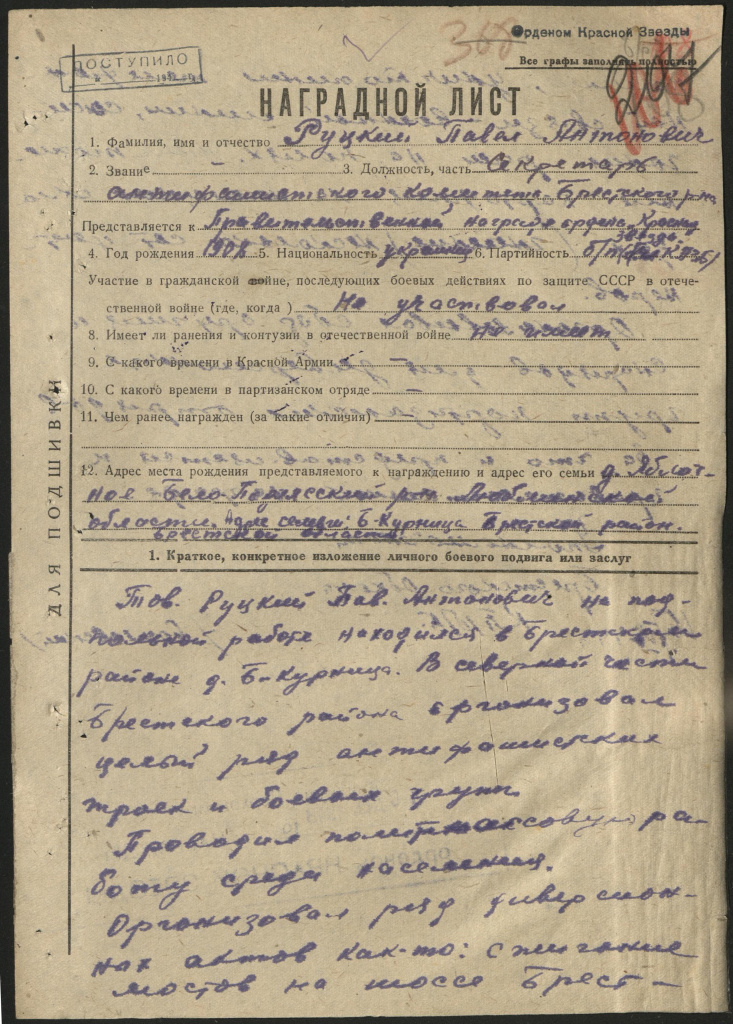 Орденом Красной Звезды
ПОСТУПИЛО
368
Все графы заполнять полностью
НАГРАДНОЙ ЛИСТ
1. Фамилия, имя и отчество Руцкий Павел Антонович
2. Звание 3. Должность, часть Секретарь
антифашистского комитета Брестского р-на
Представляется к Правительственной награде ордена Красная
звезда
4. Год рождения 1908 5. Национальность украинец 6. Партийность б/п
Участие в гражданской войне, последующих боевых действиях по защите СССР в отече-
ственной войне (где, когда) Не участвовал
8. Имеет ли ранения и контузии в отечественной войне не имеет
9. С какого времени в Красной Армии —
10. С какого времени в партизанском отряде —
11. Чем ранее награжден (за какие отличия) —
12. Адрес места рождения представляемого к награждению и адрес его семьи д. Яблоч-
ное Бело-Подлясский р-н Люблинской
области. Адрес семьи: Б-Курница Брестской район.
Брестской области
1. Краткое, конкретное изложение личного боевого подвига или заслуг
Тов. Руцкий Пав. Антонович на под-
польной работе находился в Брестском
районе д. Б-Курница. В северной части
Брестского района организовал
целый ряд антифашистских
троек и боевых групп.
Проводил политмассовую ра-
боту среди населения.
Организовал ряд диверсион-
ных актов как-то: сжигание
мостов на шоссе Брест-
ДЛЯ ПОДШИВКИ